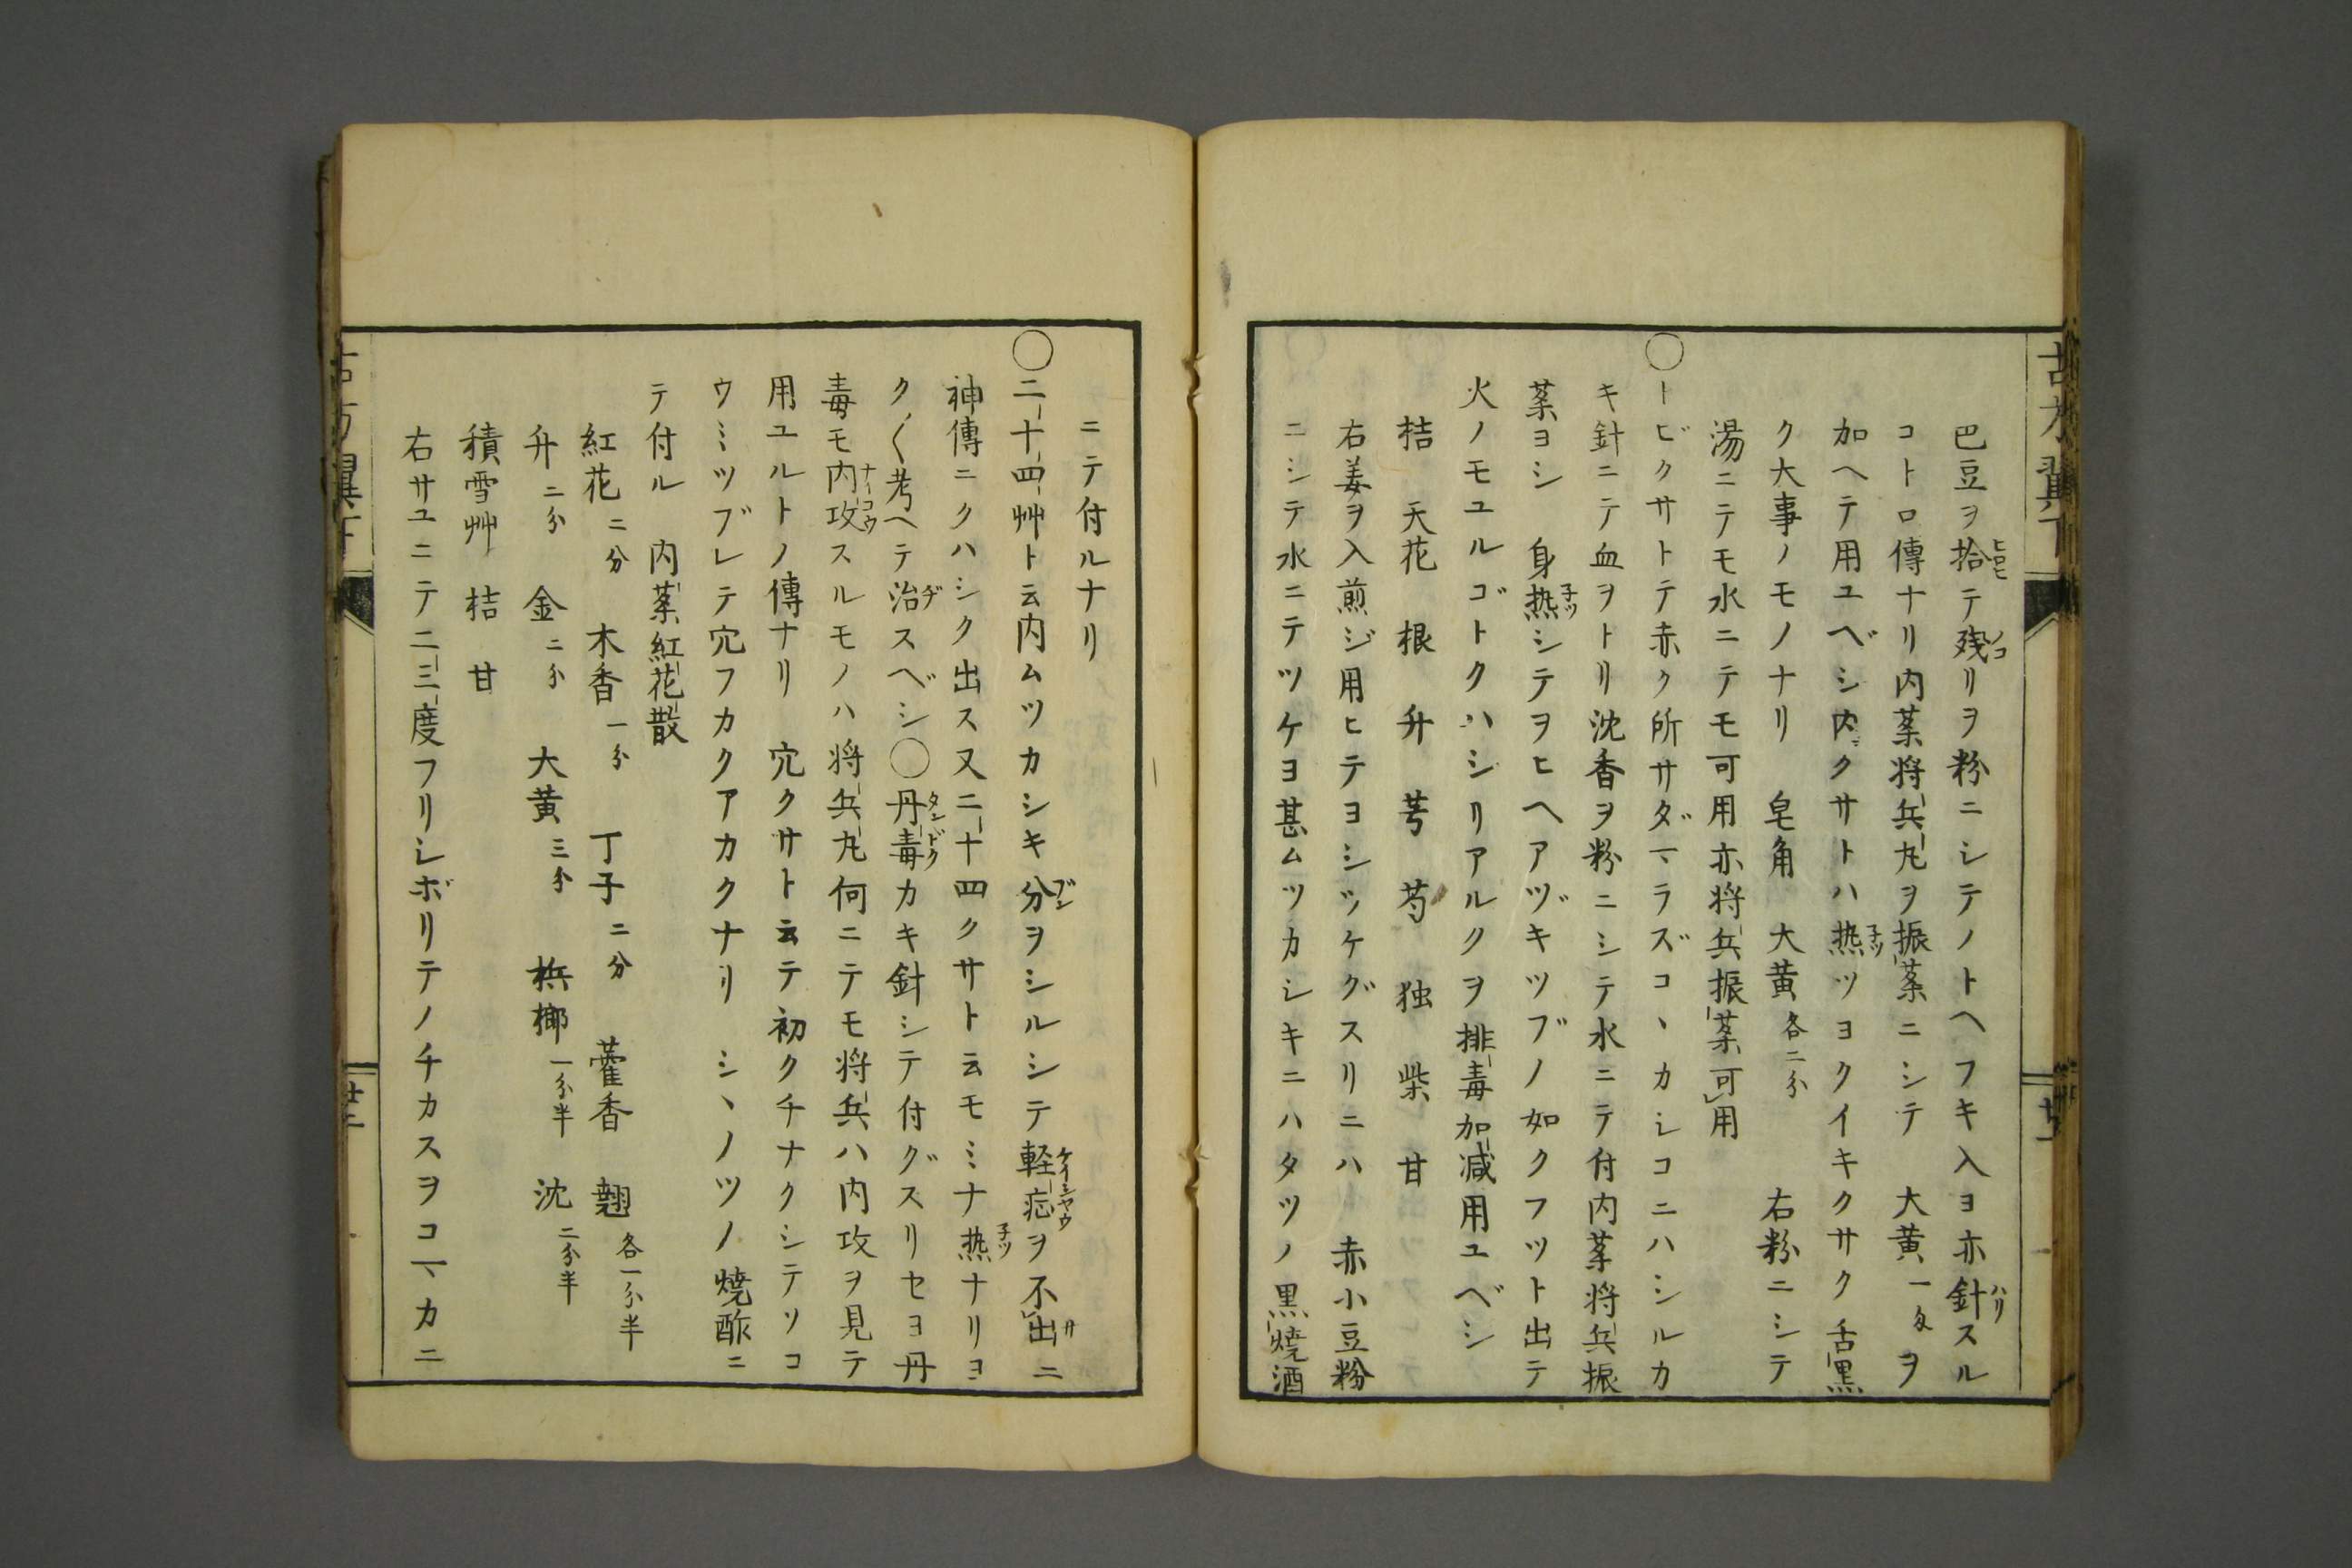 古方翼下
巴豆ヲ拾テ残リヲ粉ニシテノトヘフキ入ヨ亦針スル
コト口傳ナリ内薬将兵丸ヲ振薬ニシテ 大黄一匁ヲ
加ヘテ用ユベシ内クサトハ热ツヨクイキクサク舌黒
ク大事ノモノナリ 皂角 大黄各二分 右粉ニシテ
湯ニテモ水ニテモ可用亦将兵振薬可用
○トビクサトテ赤ク所サダマラズコヽカシコニハシルカ
キ針ニテ血ヲトリ沈香ヲ粉ニシテ水ニテ付内薬将兵振
薬ヨシ 身热シテヲヒヘアヅキツブノ如クフツト出テ
火ノモユルゴトクハシリアルクヲ排毒加減用ユベシ
桔 天花 根 升 芎 芍 独 柴 甘
右姜ヲ入煎ジ用ヒテヨシツケグスリニハ 赤小豆粉
ニシテ水ニテツケヨ甚ムツカシキニハタツノ黒焼酒
ニテ付ルナリ
○二十四艸ト云内ムツカシキ分ヲシルシテ軽症ヲ不出ニ
神傳ニクハシク出ス又二十四クサト云モミナ热ナリヨ
ク〱考ヘテ治スベシ○丹毒カキ針シテ付グスリセヨ丹
毒モ内攻スルモノハ将兵丸何ニテモ将兵ハ内攻ヲ見テ
用ユルトノ傳ナリ 穴クサト云テ初クチナクシテソコ
ウミツブレテ穴フカクアカクナリ シヽノツノ焼酢ニ
テ付ル 内薬紅花散
紅花二分 木香一分 丁子二分 藿香 翹各一分半
升二分 金二分 大黄三分 梹榔一分半 沈二分半
積雪艸 桔 甘
右サユニテ二三度フリシボリテノチカスヲコマカニ
古方翼下